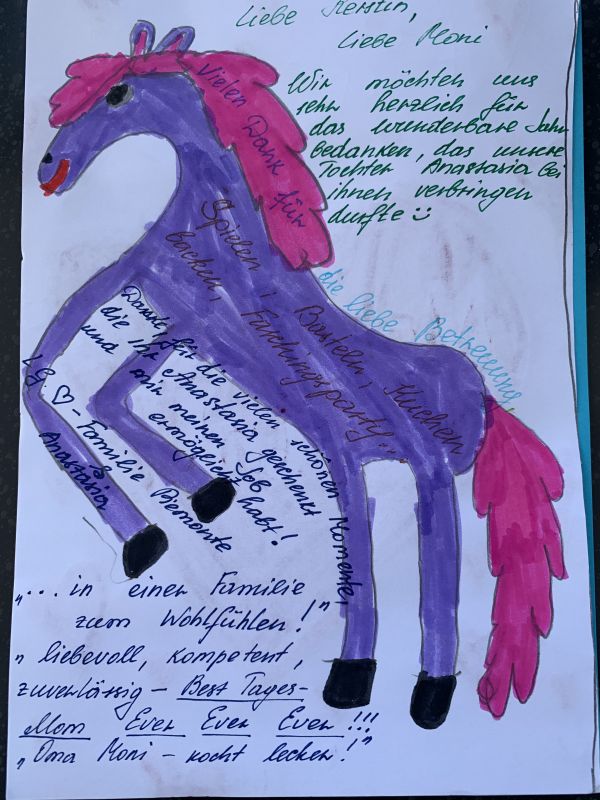 Liebe Kerstin,
Liebe Moni
Wir möchten uns
sehr herzlich für
das wunderbare Jahr
bedanken, das unsere
Tochter Anastasia bei
ihnen verbringen
durfte
Vielen Dank für
die liebe Betreuung,
Spielen, Basteln, Kuchen
backen, Faschingsparty...
Danke für die vielen schönen Momente,
die ihr Anastasia geschenkt
und mir meinen Job
ermöglicht habt!
LG. ♡ - Familie Piemonte
Anastasia
"... in einer Familie
zum Wohlfühlen!"
"liebevoll, kompetent,
zuverlässig - Best Tages-
Mom Ever Ever Ever!!!
"Oma Moni - kocht lecker!"